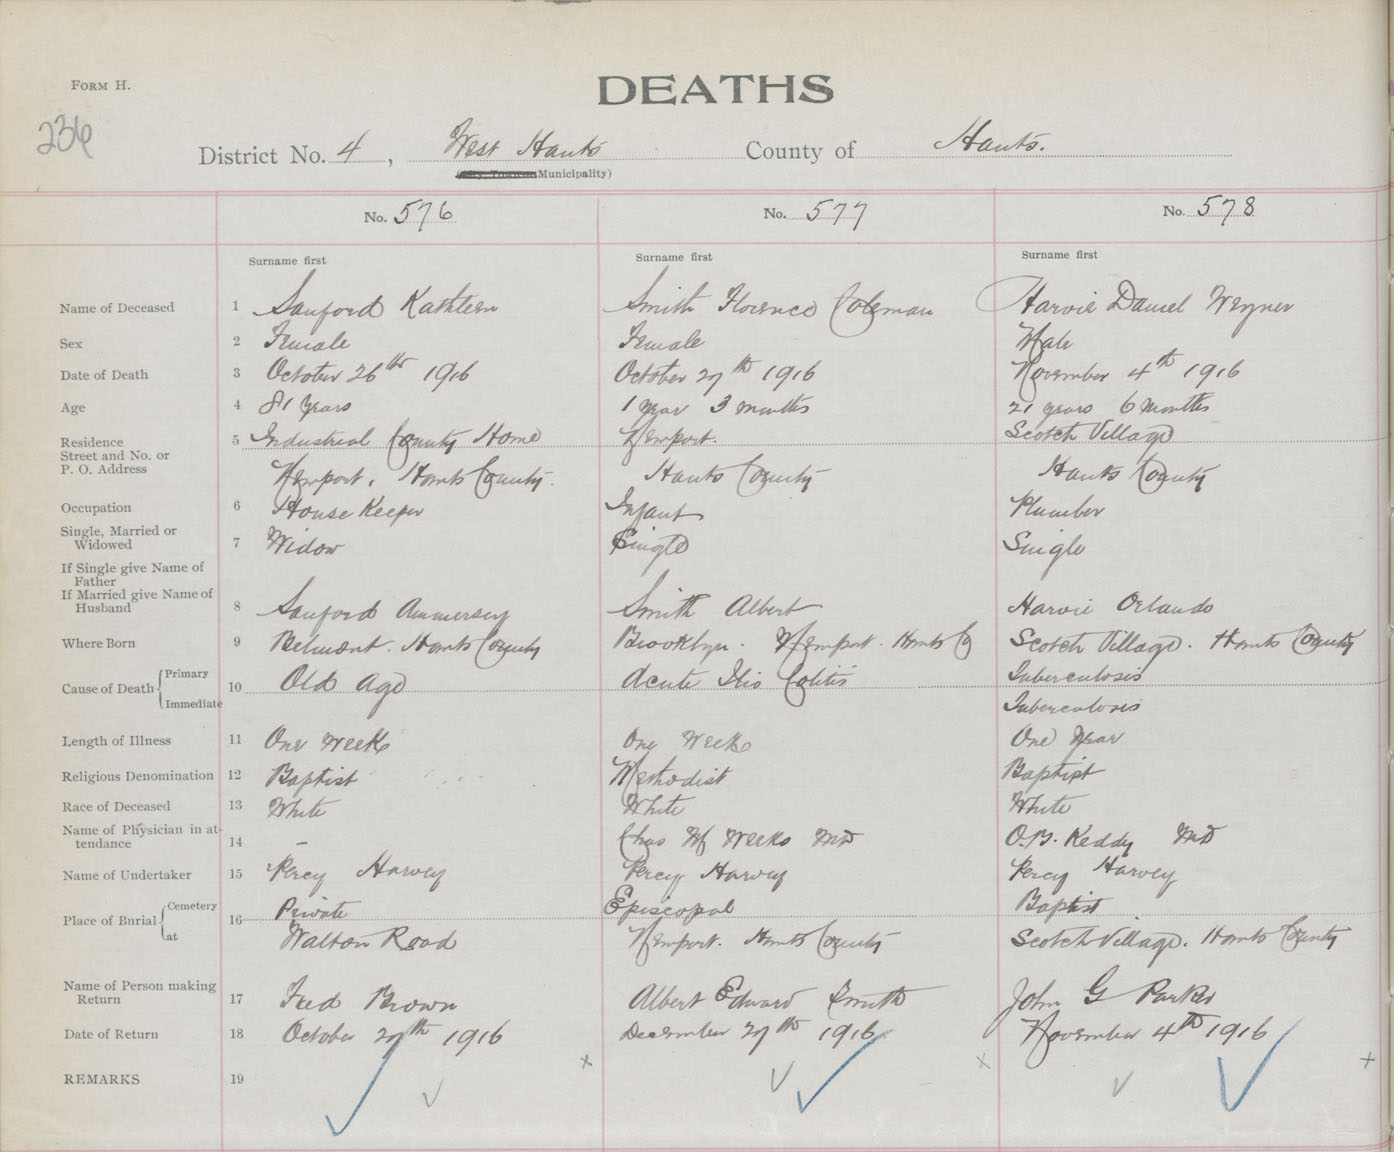 FORM H.
DEATHS
236
District No. 4, West Hants County of Hants.
Municipality)
No. 576 No. 577 No. 578
Surname first Surname first Surname first
Name of Deceased 1 Sanford Kathleen Smith Florence Coleman Harvie Daniel
Sex 2 Female Female Male
Date of Death 3 October 26th 1916 October 27th 1916 November 4th 1916
Age 4 81 years 1 year 3 months 21 years 6 months
Residence 5 Industrial County Home Newport. Scotch Village
Street and No. or
P. O. Address Newport, Hants County. Hants County Hants County
Occupation 6 House Keeper Infant Plumber
Single, Married or
Widowed 7 Widow Single Single
If Single give Name of
Father
If Married give Name of
Husband 8 Sanford Smith Albert Harvie Orlando
Where Born 9 Belmont. Hants County Brooklyn. Newport. Hants Co Scotch Village. Hants County
Cause of Death { Primary 10 Old Age Acute Ilio Colitis Tuberculosis
Immediate Tuberculosis
Length of Illness 11 One week One week One year
Religious Denomination 12 Baptist Methodist Baptist
Race of Deceased 13 White White White
Name of Physician in at-
tendance 14 – Chas W Weeks MD O.B. Keddy MD
Name of Undertaker 15 Percy Harvey Percy Harvey Percy Harvey
Place of Burial { Cemetery 16 Private Episcopal Baptist
at Walton Road Newport. Hants County Scotch Village. Hants County
Name of Person making
Return 17 Fred Brown Albert Edward Smith John G Parker
Date of Return 18 October 27th 1916 December 27th 1916 November 4th 1916
REMARKS 19